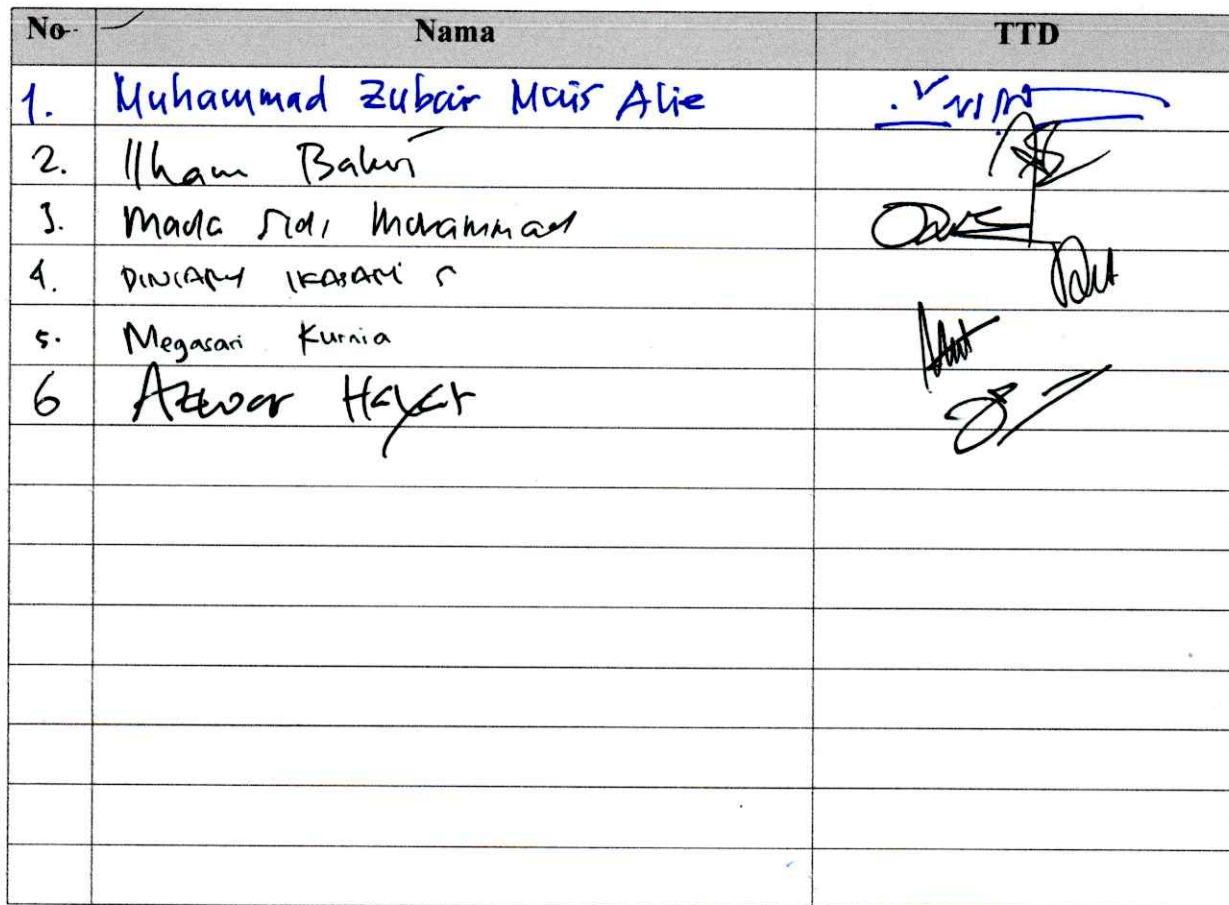 No Nama TTD
1. Muhammad Zubair Mais Alie
2. Ilham Bakri
3. Mada Sidi Muhammad
4. IKASARI S
5. Megasari Kurnia
6 Azwar Hayat